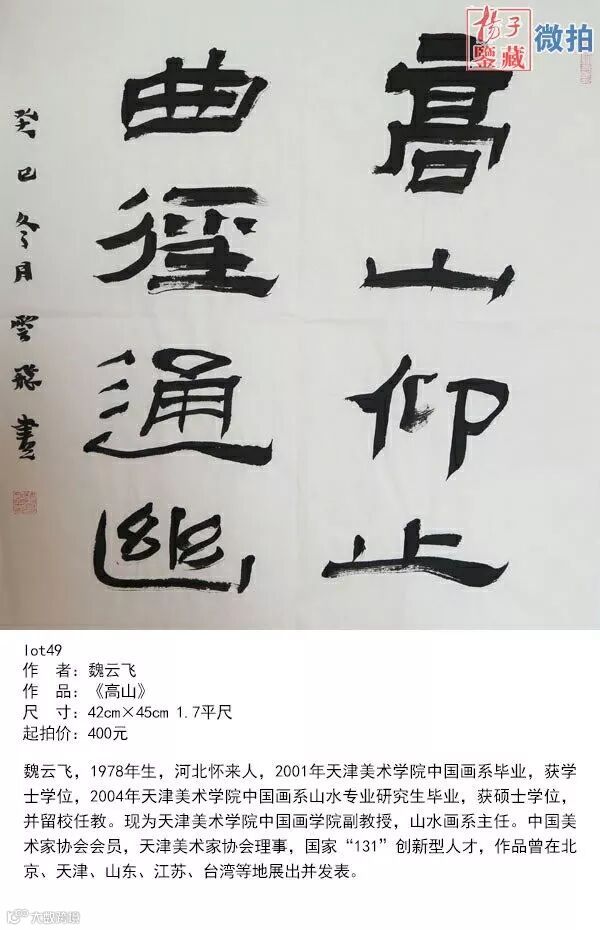 杨子
鉴藏
微拍
高山仰止
曲徑通幽
癸巳冬月雲飛書
lot49
作 者：魏云飞
作 品：《高山》
尺 寸：42cm×45cm 1.7平尺
起拍价：400元
魏云飞，1978年生，河北怀来人，2001年天津美术学院中国画系毕业，获学
士学位，2004年天津美术学院中国画系山水专业研究生毕业，获硕士学位，
并留校任教。现为天津美术学院中国画学院副教授，山水画系主任。中国美
术家协会会员，天津美术家协会理事，国家“131”创新型人才，作品曾在北
京、天津、山东、江苏、台湾等地展出并发表。
大数跨境